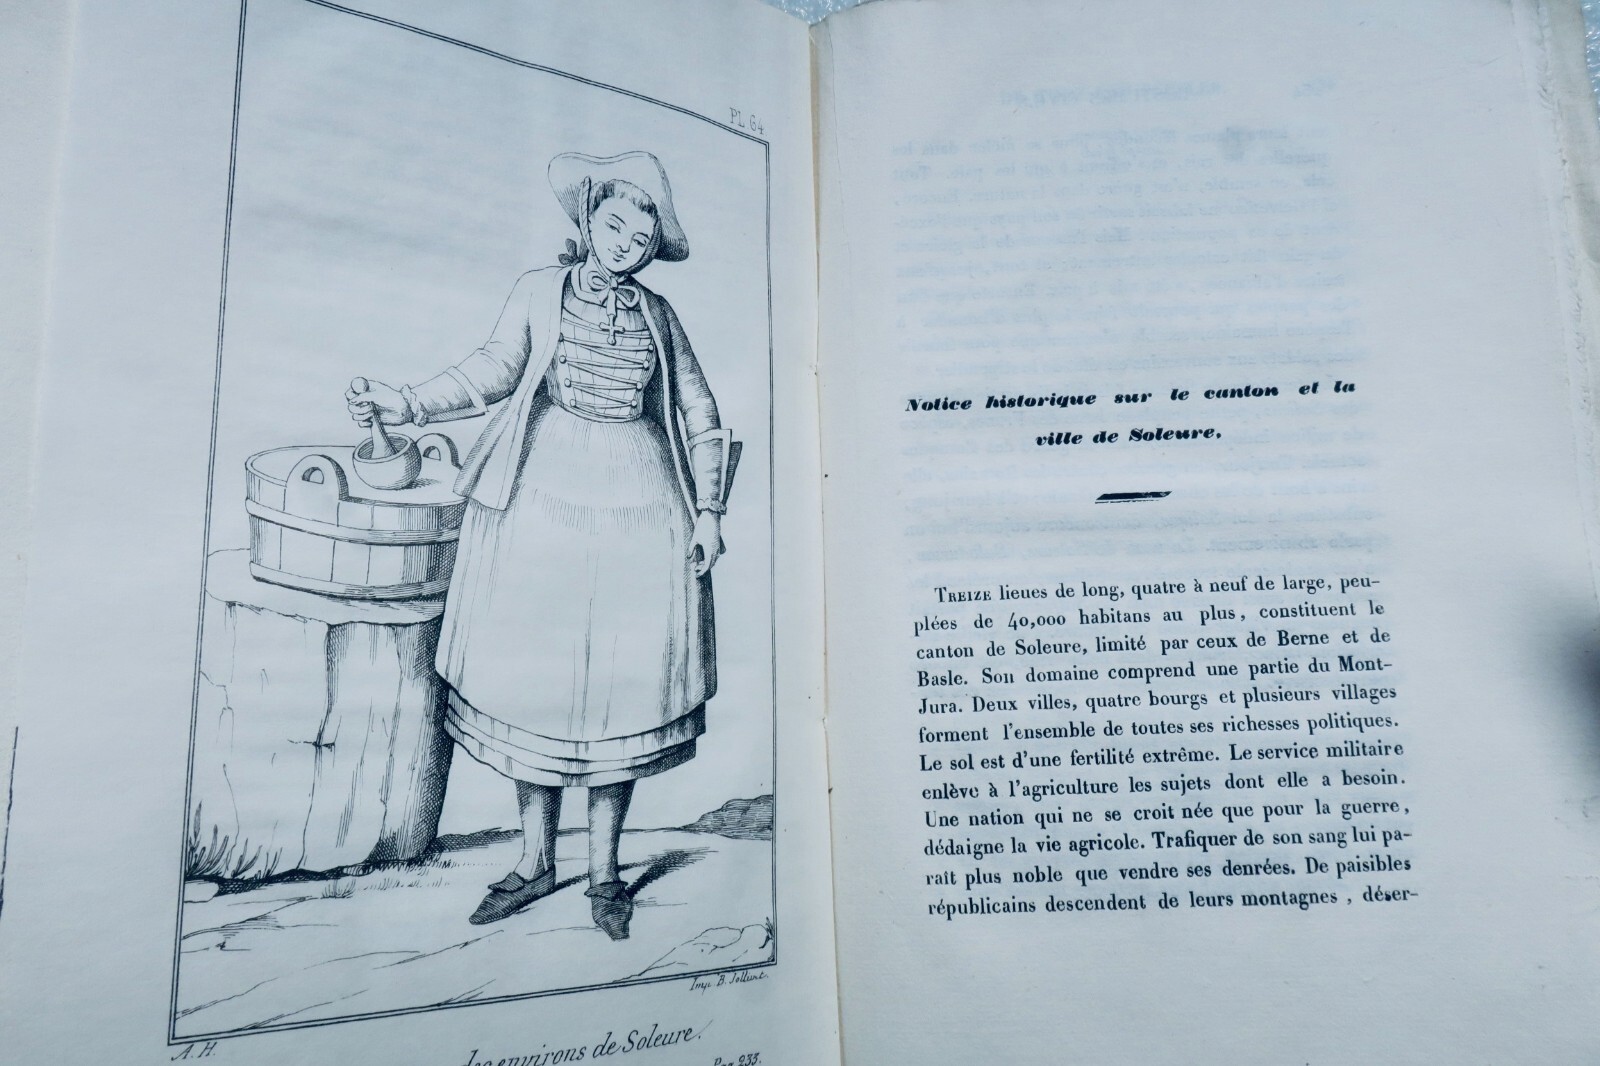 PL 64.
A. H.
Imp. B. Jollure.
des environs de Soleure.
Pag 233.
Notice historique sur le canton et la
ville de Soleure,
TREIZE lieues de long, quatre à neuf de large, peu-
plées de 40,000 habitans au plus, constituent le
canton de Soleure, limité par ceux de Berne et de
Basle. Son domaine comprend une partie du Mont-
Jura. Deux villes, quatre bourgs et plusieurs villages
forment l'ensemble de toutes ses richesses politiques.
Le sol est d'une fertilité extrême. Le service militaire
enlève à l'agriculture les sujets dont elle a besoin.
Une nation qui ne se croit née que pour la guerre,
dédaigne la vie agricole. Trafiquer de son sang lui pa-
raît plus noble que vendre ses denrées. De paisibles
républicains descendent de leurs montagnes, déser-